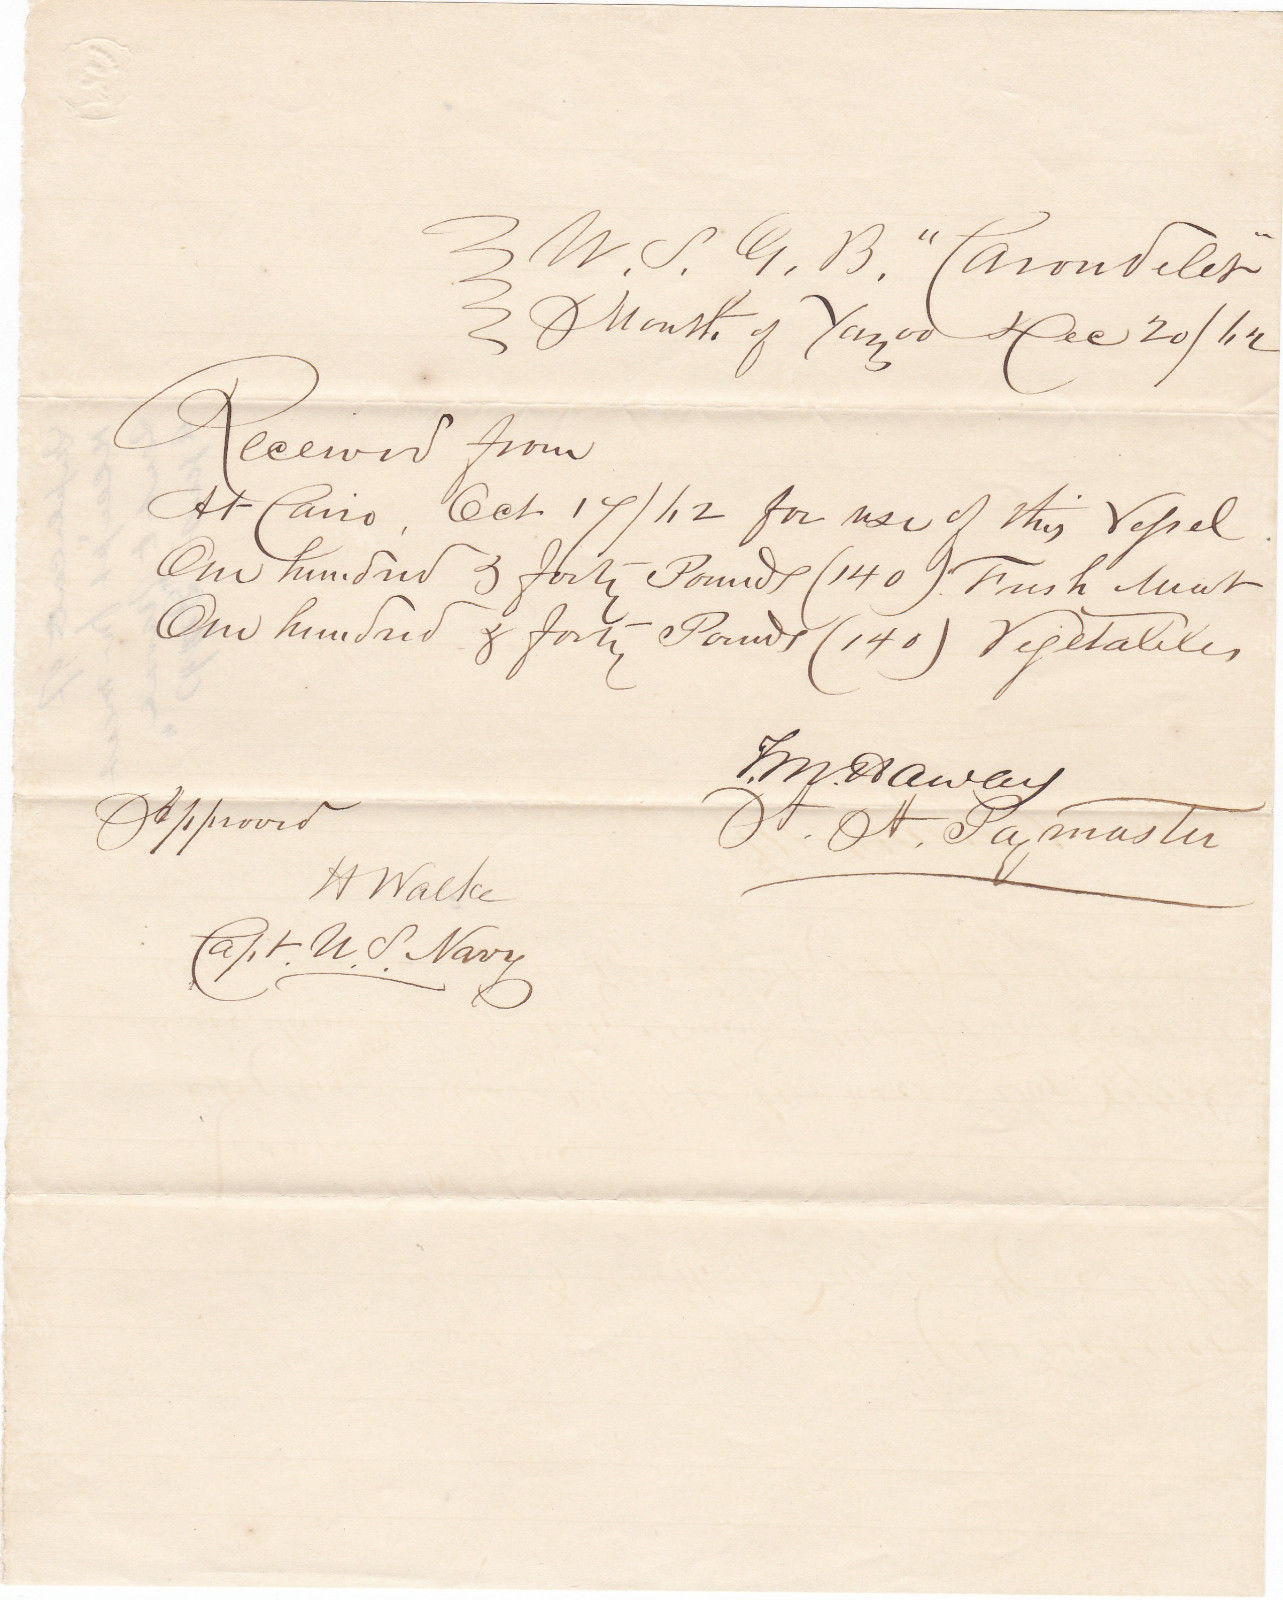 U. S. G. B. "Carondelet"
Mouth of Yazoo Dec 20/62
Received from
At Cairo, Oct 17/62 for use of this Vessel.
One hundred & forty Pounds (140) Fresh Meat
One hundred & forty Pounds (140) Vegetables
A. A. Paymaster
Approved
H Walke
Capt. U. S. Navy